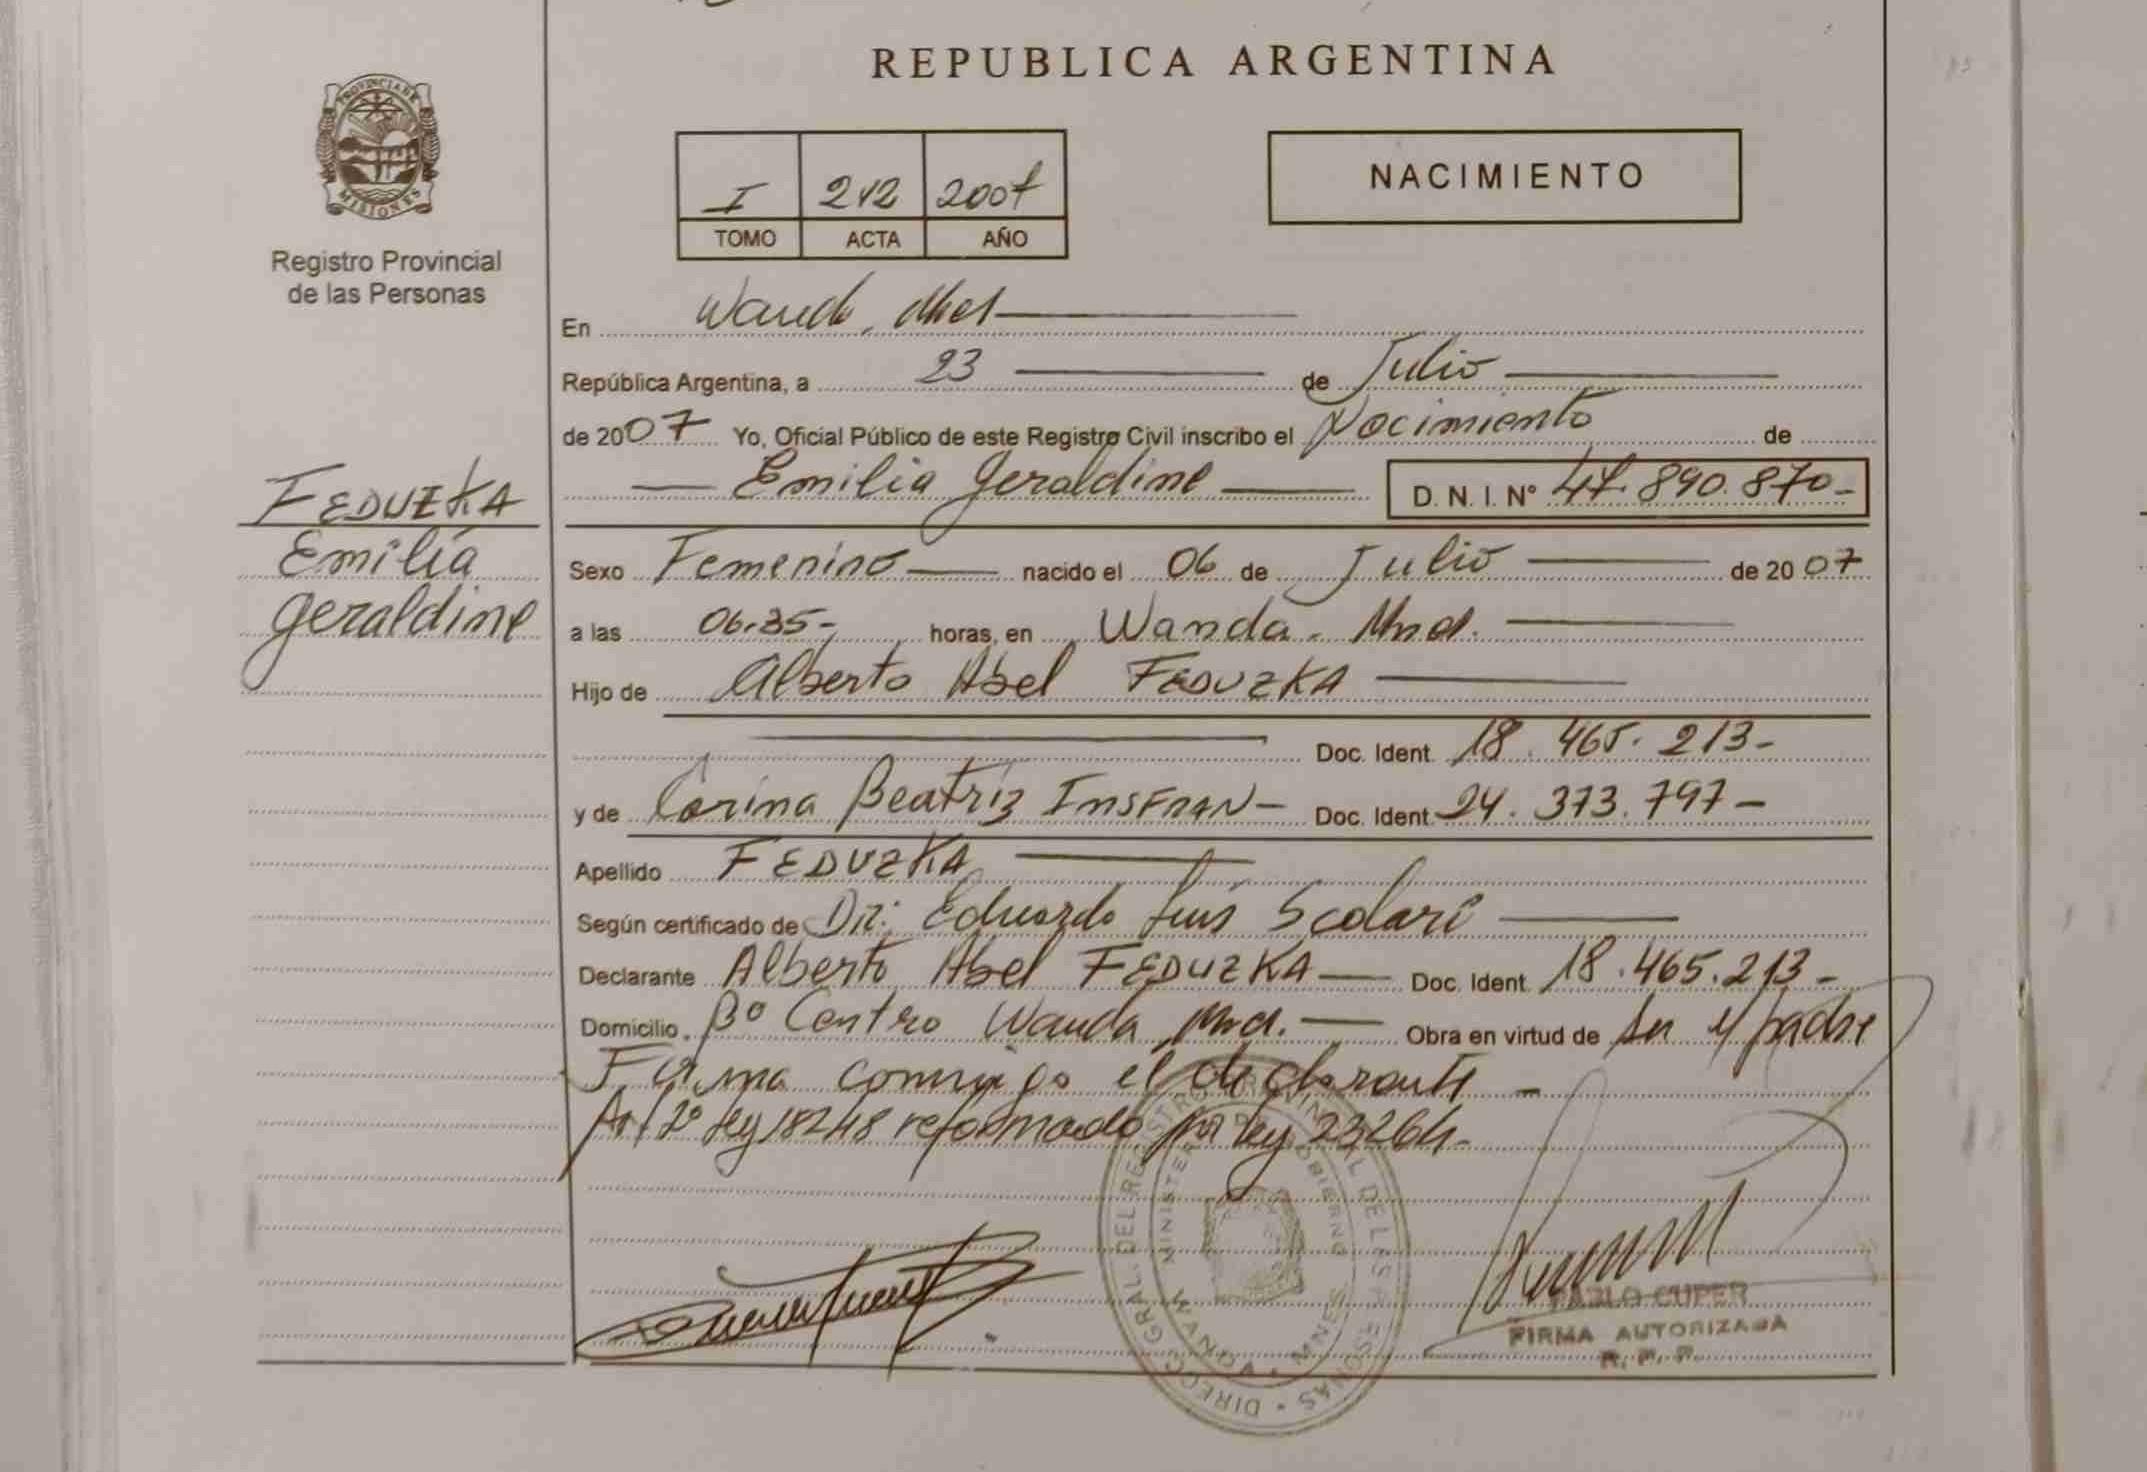 REPUBLICA ARGENTINA
PROVINCIA DE MISIONES
Registro Provincial
de las Personas
NACIMIENTO
I 212 2007
TOMO ACTA AÑO
En Wanda, Mnes
República Argentina, a 23 de Julio
de 2007 Yo, Oficial Público de este Registro Civil inscribo el Nacimiento de
Emilia Geraldine D. N. I. Nº 47.890.870-
FEDUZKA
Emilia
Geraldine
Sexo Femenino nacido el 06 de Julio de 2007
a las 06.35- horas, en Wanda. Mnes.
Hijo de Alberto Abel FEDUZKA
Doc. Ident. 18.465.213-
y de Corina Beatriz INSFRAN- Doc. Ident. 24.373.797-
Apellido FEDUZKA
Según certificado de Dr: Eduardo Luis Scolari
Declarante Alberto Abel FEDUZKA Doc. Ident. 18.465.213-
Domicilio Bº Centro Wanda Mnes. Obra en virtud de ser el padre
Firma conmigo el declarante -
Art 2º ley 18248 reformado por ley 23264-
DIRECC. GRAL. DEL REGISTRO PROVINCIAL DE LAS PERSONAS
MINISTERIO DE GOBIERNO
WANDA MNES
PABLO CUPER
FIRMA AUTORIZADA
R. P. P.